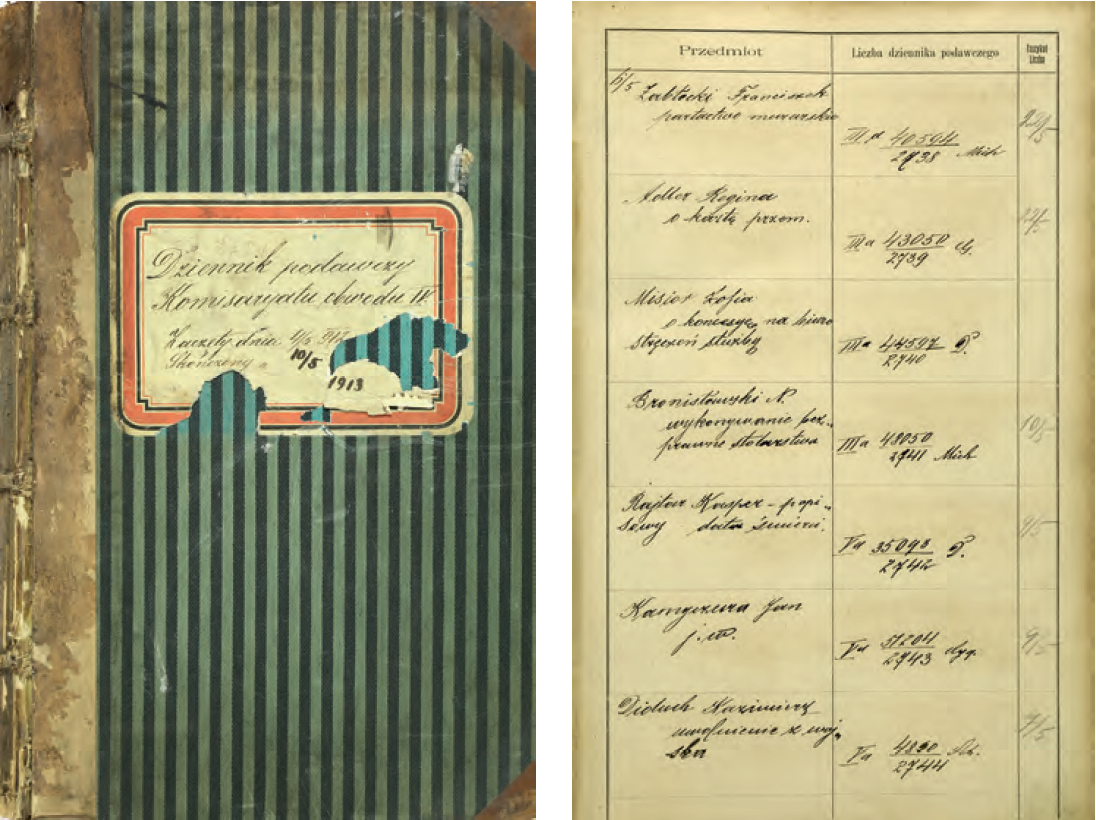 Dziennik podawczy
Komisaryatu obwodu IV.
Zaczęty dnia 4/5 1912
Skończony "
10/5
1913
Przedmiot
Liczba dziennika podawczego
Liczba
6/5
Zabłocki Franciszek
partactwo murarskie
III a 40594
2738 Mich
22/5
Adler Regina
o kartę przem.
III a 43050
2739
22/5
Misior Zofia
o koncesyę na biuro
stręczeń służby
III a 44597
2740
Bronisławski N.
wykonywanie bez„
prawne stolarstwa
III a 48050
2741 Mich
10/5
Rajtar Kasper – popi„
sowy data śmierci.
V a 35098
2742
9/5
Kamyczura Jan
j. w.
V a 51204
2743 dyg.
9/5
Diduch Kazimierz
uwolnienie z woj„
ska
V a 4890
2744
7/5